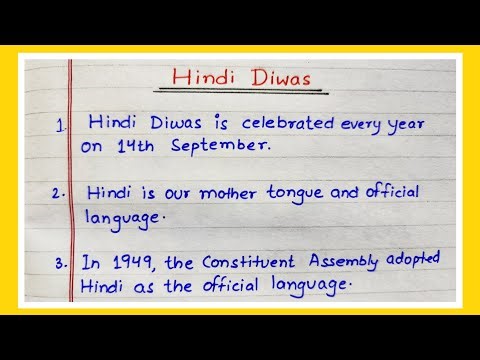 Hindi Diwas
1. Hindi Diwas is celebrated every year
on 14th September.
2. Hindi is our mother tongue and official
language.
3. In 1949, the Constituent Assembly adopted
Hindi as the official language.